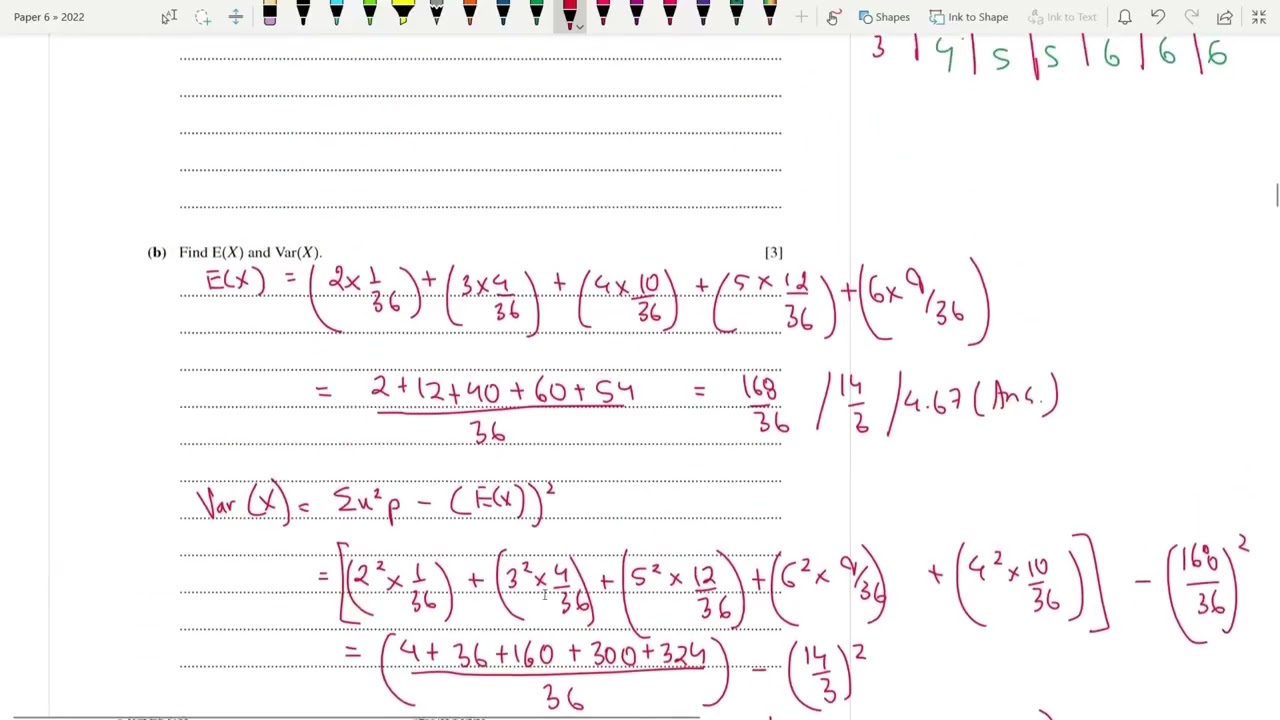 Paper 6 » 2022
Shapes Ink to Shape Ink to Text
3 | 4 | 5 | 5 | 6 | 6 | 6
(b) Find E(X) and Var(X). [3]
E(X) = (2 × 1/36) + (3 × 4/36) + (4 × 10/36) + (5 × 12/36) + (6 × 9/36)
= (2 + 12 + 40 + 60 + 54)/36 = 168/36 / 14/3 / 4.67 (Ans.)
Var (X) = Σx²p − (E(X))²
= [(2² × 1/36) + (3² × 4/36) + (5² × 12/36) + (6² × 9/36) + (4² × 10/36)] − (168/36)²
= ((4 + 36 + 160 + 300 + 324)/36) − (14/3)²